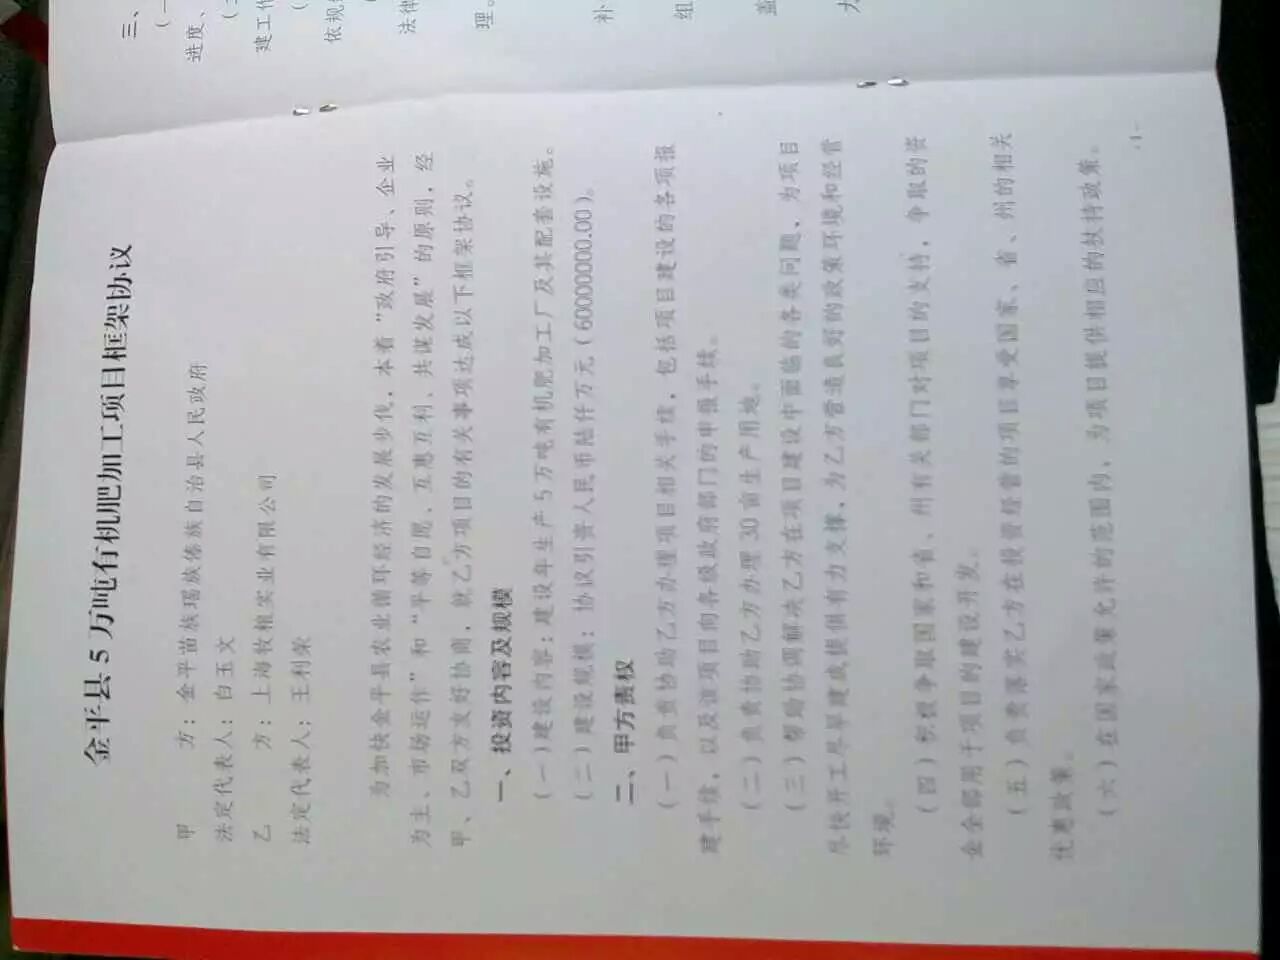 金平县5万吨有机肥加工项目框架协议
甲 方：金平苗族瑶族傣族自治县人民政府
法定代表人：白玉文
乙 方：上海牧粮实业有限公司
法定代表人：王利荣
为加快金平县农业循环经济的发展步伐，本着“政府引导、企业
为主、市场运作”和“平等自愿、互惠互利、共谋发展”的原则，经
甲、乙双方友好协商，就乙方项目的有关事项达成以下框架协议。
一、投资内容及规模
（一）建设内容：建设年生产5万吨有机肥加工厂及其配套设施。
（二）建设规模：协议引资人民币陆仟万元（60000000.00）。
二、甲方责权
（一）负责协助乙方办理项目相关手续，包括项目建设的各项报
建手续，以及该项目向各级政府部门的申报手续。
（二）负责协助乙方办理30亩生产用地。
（三）帮助协调解决乙方在项目建设中面临的各类问题，为项目
尽快开工尽早建成提供有力支撑，为乙方营造良好的政策环境和经营
环境。
（四）积极争取国家和省、州有关部门对项目的支持，争取的资
金全部用于项目的建设开发。
（五）负责落实乙方在投资经营的项目享受国家、省、州的相关
优惠政策。
（六）在国家政策允许的范围内，为项目提供相应的扶持政策。
·1·
三、
（一
进度、
建工作
依规
法律
理。
补
组
盖
力